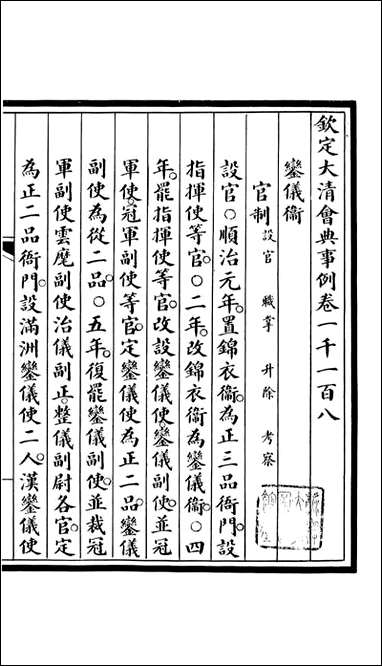 欽定大清會典事例卷一千一百八
鑾儀衞
官制 設官 職掌 升除 考察
設官○順治元年置錦衣衞為正三品衙門設
指揮使等官○二年改錦衣衞為鑾儀衞○四
年罷指揮使等官改設鑾儀使鑾儀副使並冠
軍使冠軍副使等官定鑾儀使為正二品鑾儀
副使為從二品○五年復罷鑾儀副使並裁冠
軍副使雲麾副使治儀副正整儀副尉各官定
為正二品衙門設滿洲鑾儀使二人漢鑾儀使